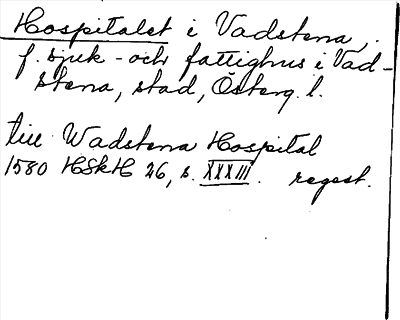 Hospitalet i Vadstena,
f. sjuk- och fattighus i Vad-
stena, stad, Österg. l.
till Wadstena Hospital
1580 HSkH 26, s. XXXIII. regest.